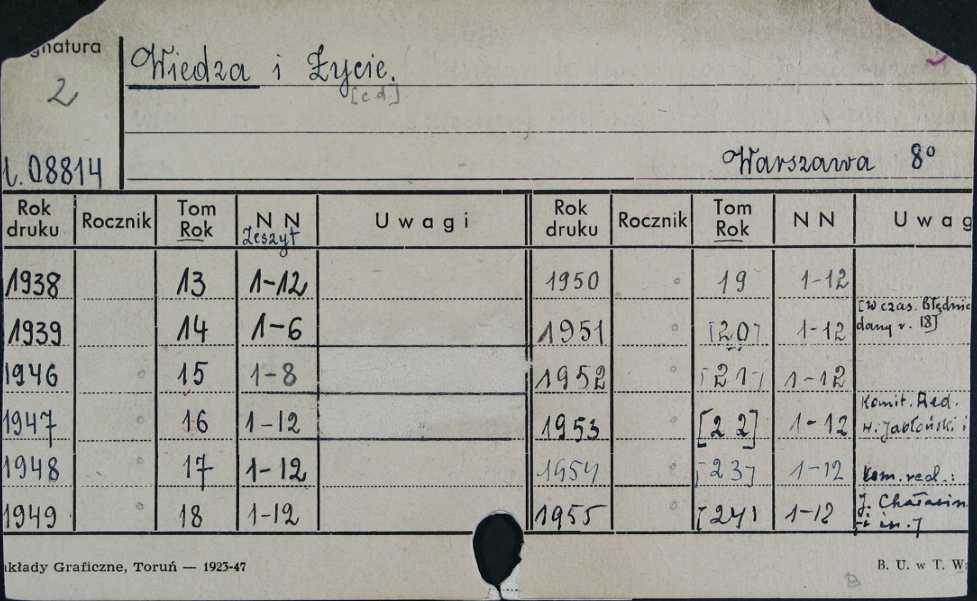 gnatura
2
Wiedza i Życie.
[c d]
1.08814
Warszawa 8°
Rok druku Rocznik Tom Rok N N Zeszyt Uwagi Rok druku Rocznik Tom Rok N N Uwag
1938 13 1-12 1950 19 1-12
1939 14 1-6 1951 [20] 1-12 [W czas. Błędnie dany r. 18]
1946 15 1-8 1952 [21] 1-12
1947 16 1-12 1953 [22] 1-12 Komit. Red. H. Jabłoński i
1948 17 1-12 1954 [23] 1-12 Kom. red.:
1949 18 1-12 1955 [24] 1-12 J. Chałasin i in.]
akłady Graficzne, Toruń — 1923-47
B. U. w T. W